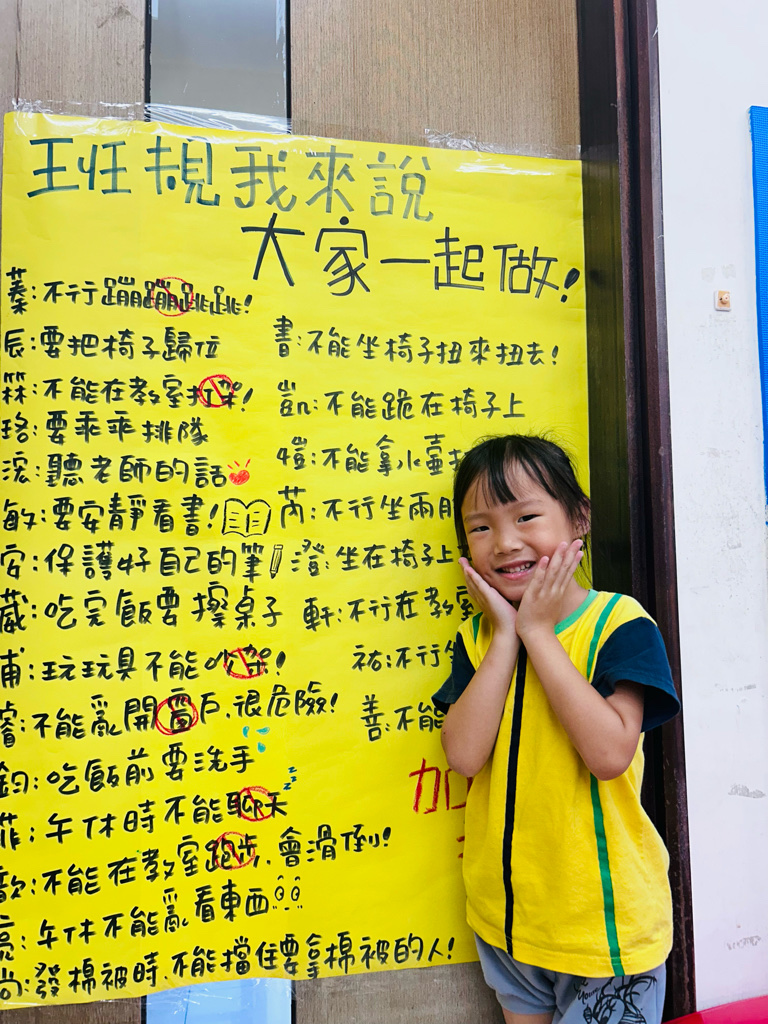 班規我來說
大家一起做!
蓁:不行蹦蹦跳跳!
辰:要把椅子歸位
箖:不能在教室打架!
珞:要乖乖排隊
滾:聽老師的話
敏:要安靜看書!
安:保護好自己的筆
葳:吃完飯要擦桌子
甫:玩玩具不能吵架!
睿:不能亂開窗戶,很危險!
鈞:吃飯前要洗手
菲:午休時不能聊天
歆:不能在教室跑步,會滑倒!
亮:午休不能亂看東西
尚:發棉被時,不能擋住要拿棉被的人!
書:不能坐椅子扭來扭去!
凱:不能跪在椅子上
愷:不能拿水壺
芮:不行坐兩
澄:坐在椅子上
軒:不行在教室
祐:不行坐
善:不能
加